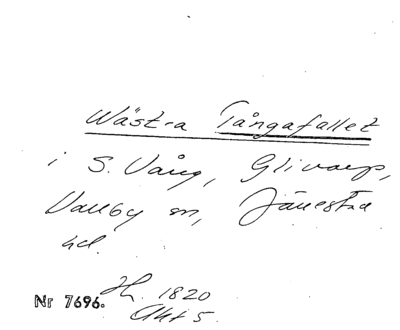 Wästra Tångafallet
i S. Vång, Glivarp,
Vallby sn, Järrestad
hd.
Hr. 1820
Nr 7696.
Akt 5.